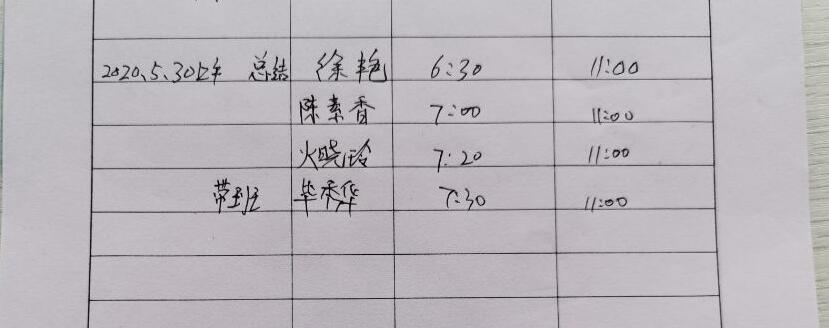 2020.5.30上午 总结 徐艳 6:30 11:00
陈素香 7:00 11:00
火晓玲 7:20 11:00
带班 毕秀华 7:30 11:00